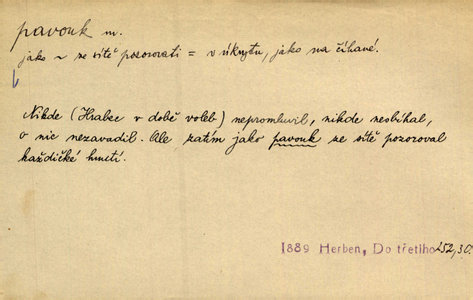 pavouk m.
jako ~ ze sítě pozorovati = v úkrytu, jako na číhané.
Nikde (Hrabec v době voleb) nepromluvil, nikde nesbíhal,
o nic nezavadil. Ale zatím jako pavouk ze sítě pozoroval
každičké hnutí.
1889 Herben, Do třetího 252, 30.